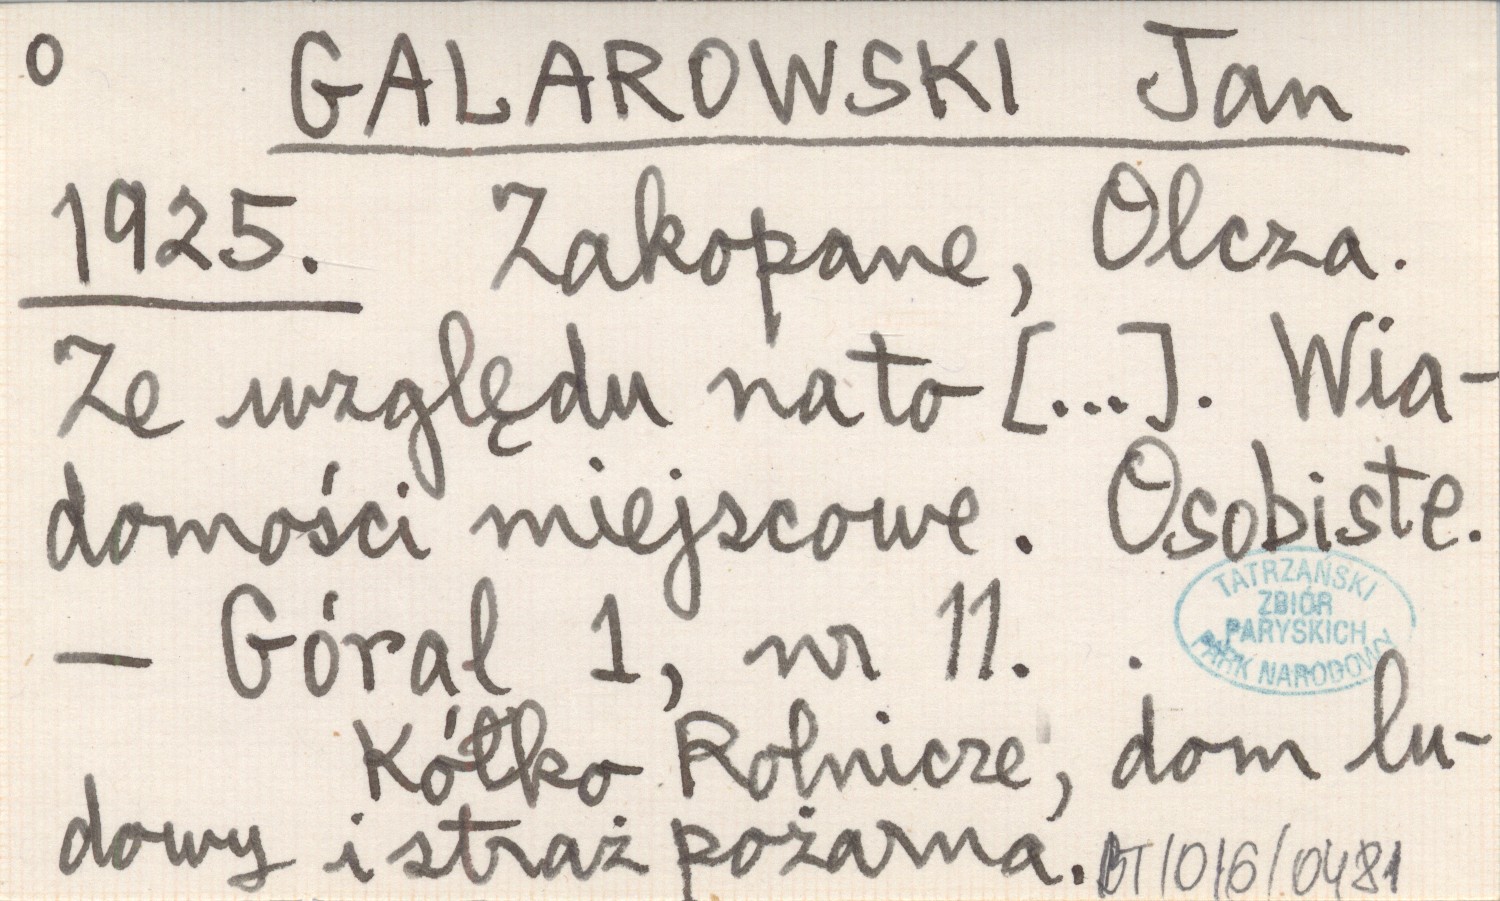 O GALAROWSKI Jan
1925. Zakopane, Olcza.
Ze względu na to [...]. Wia-
domości miejscowe. Osobiste.
TATRZAŃSKI
ZBIÓR
PARYSKICH
PARK NARODOWY
— Góral 1, nr 11.
Kółko Rolnicze, dom lu-
dowy i straż pożarna. BT/O/G/0481